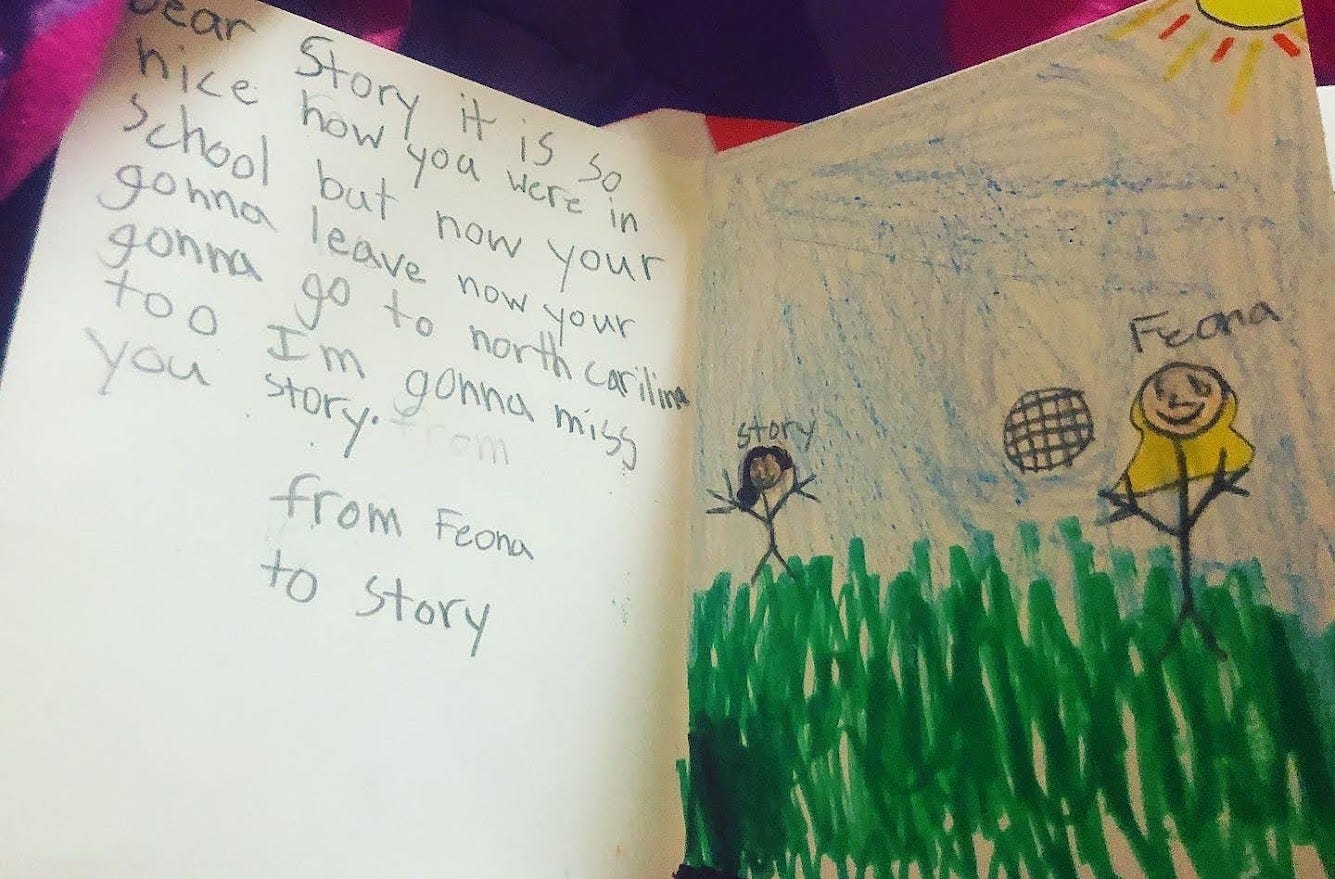 Dear Story it is so
nice how you were in
school but now your
gonna leave now your
gonna go to north carilina
too I'm gonna miss
you story. from
from Feona
to Story
story
Feona